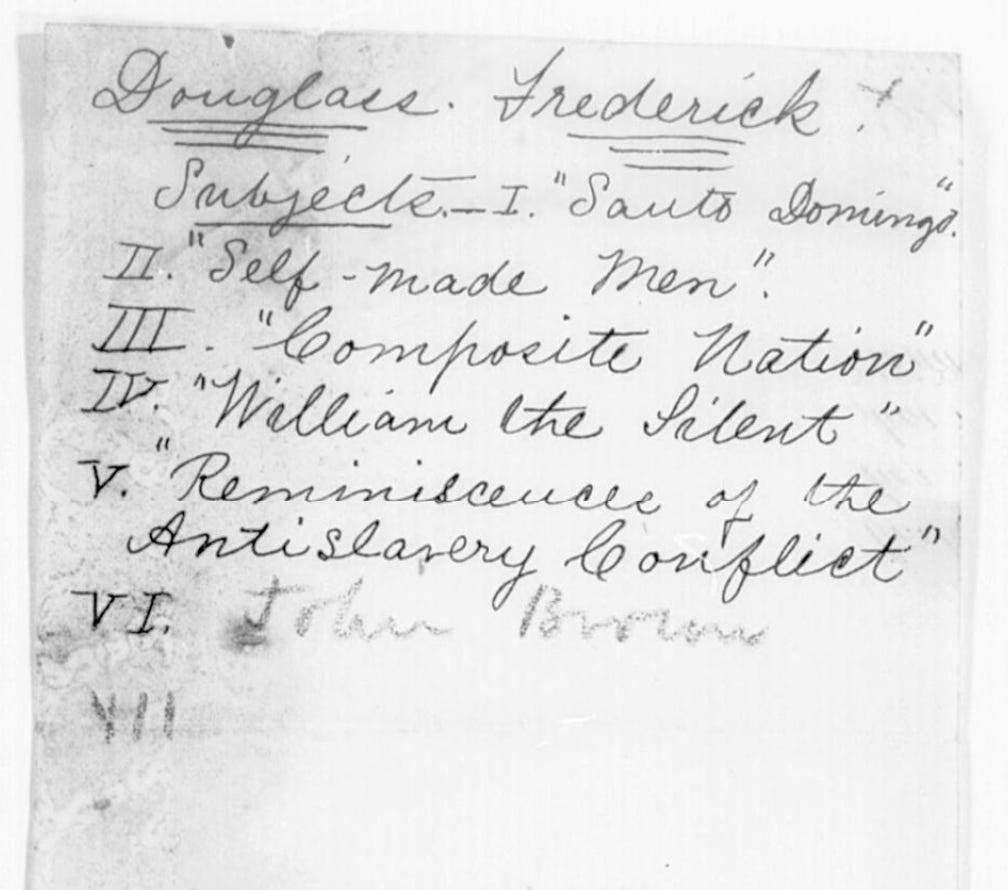 Douglass. Frederick.
Subjects.—I. "Santo Domingo".
II. "Self-made Men".
III. "Composite Nation"
IV. "William the Silent"
V. "Reminiscences of the
Antislavery Conflict"
VI. John Brown
VII